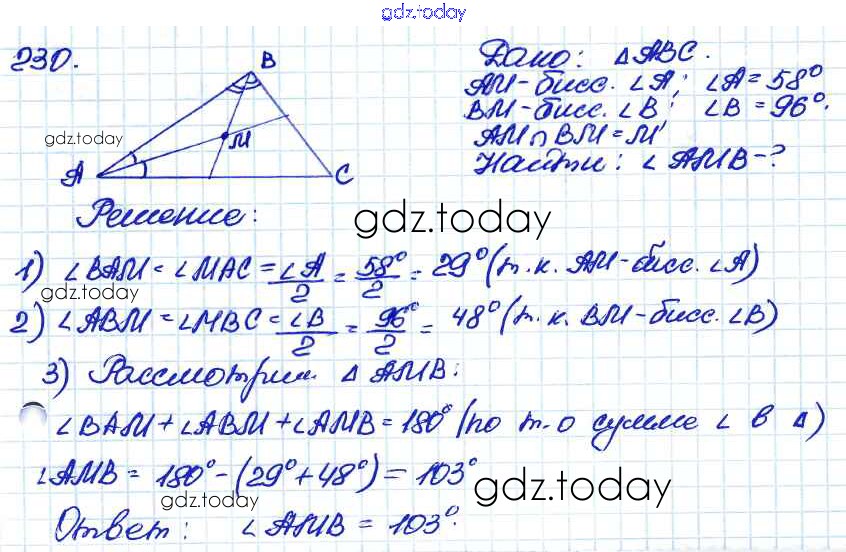 gdz.today
230.
B
A
M
C
gdz.today
Дано: △ABC.
AM-бисс. ∠A; ∠A = 58°
BM-бисс. ∠B; ∠B = 96°.
AM ∩ BM = M
Найти: ∠AMB-?
Решение:
gdz.today
1) ∠BAM = ∠MAC = ∠A/2 = 58°/2 = 29° (т.к. AM-бисс. ∠A)
gdz.today
2) ∠ABM = ∠MBC = ∠B/2 = 96°/2 = 48° (т.к. BM-бисс. ∠B)
3) Рассмотрим △AMB:
∠BAM + ∠ABM + ∠AMB = 180° (по т-о сумме ∠ в △)
∠AMB = 180° - (29° + 48°) = 103°
gdz.today
gdz.today
Ответ: ∠AMB = 103°.